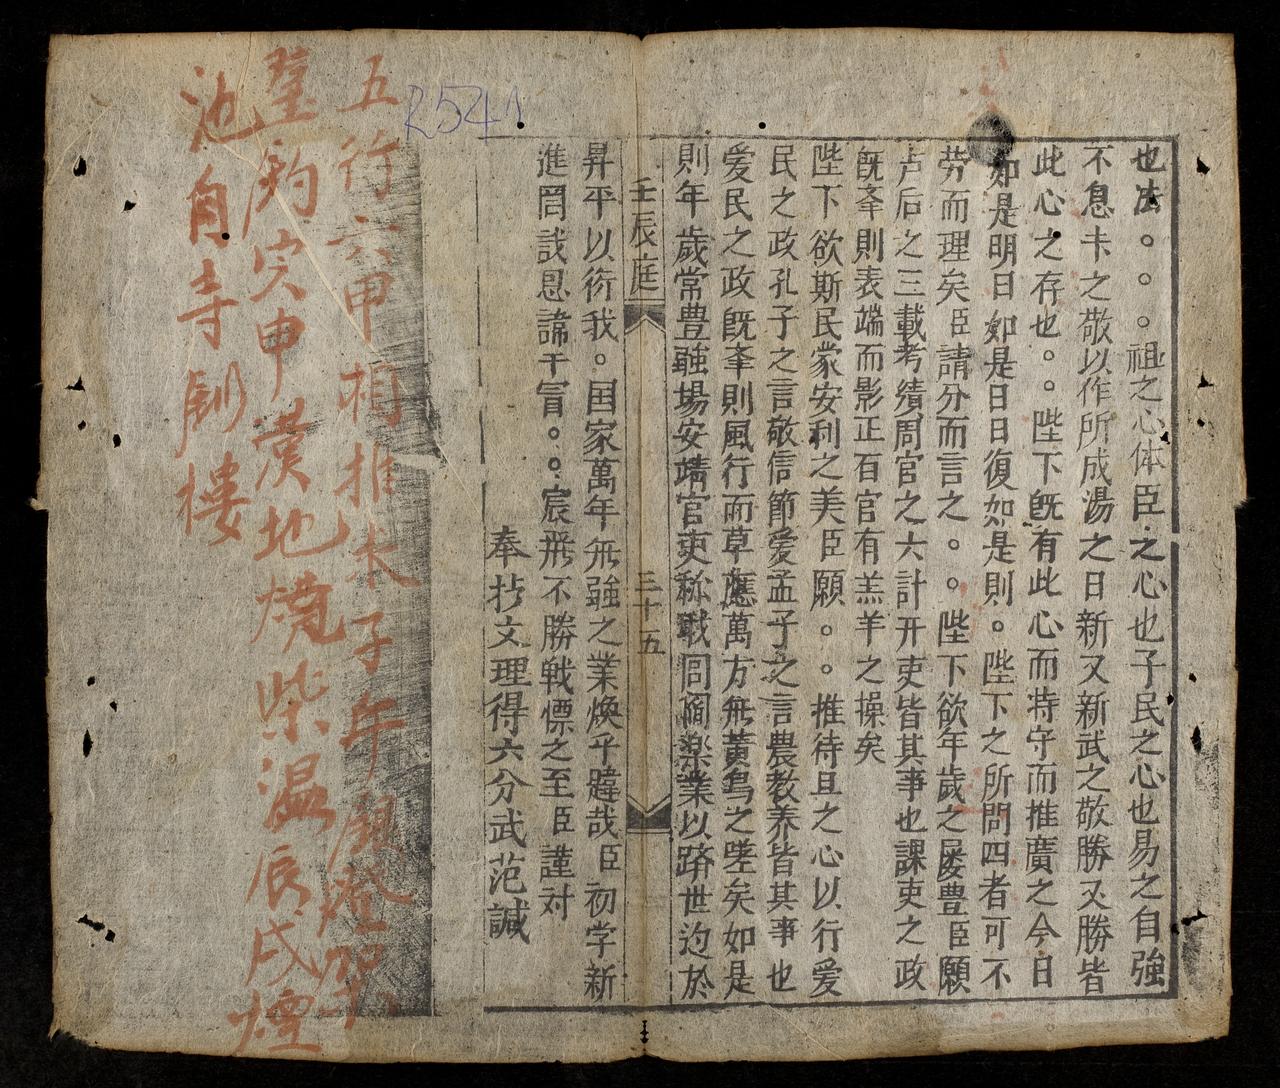 也法。。。祖之心体臣之心也子民之心也易之自強
不息卡之敬以作所成湯之日新又新武之敬勝又勝皆
此心之存也。。陛下既有此心而持守而推廣之今日
如是明日如是日日復如是則。陛下之所問四者可不
劳而理矣臣請分而言之。。陛下欲年歲之屡豊臣願
卢后之三載考績周官之六計开吏皆其事也課吏之政
既夆則表端而影正百官有羔羊之操矣
陛下欲斯民蒙安利之美臣願。。推待旦之心以行爱
民之政孔子之言敬信節爱孟子之言農教养皆其事也
爱民之政既夆則風行而草應萬方無黄鸟之嗟矣如是
則年歲常豊疆場安靖官吏称職同閻楽業以躋世边於
壬辰庭
三十五
昇平以衍我。国家萬年無疆之業煥乎韙哉臣初学新
進罔識忌諱干冒。。宸飛不勝戦慄之至臣謹对
奉抄文理得六分武范諴
R541
五行六甲相推木子年
申 地燒柴溫辰戌煙
池自寺 樓